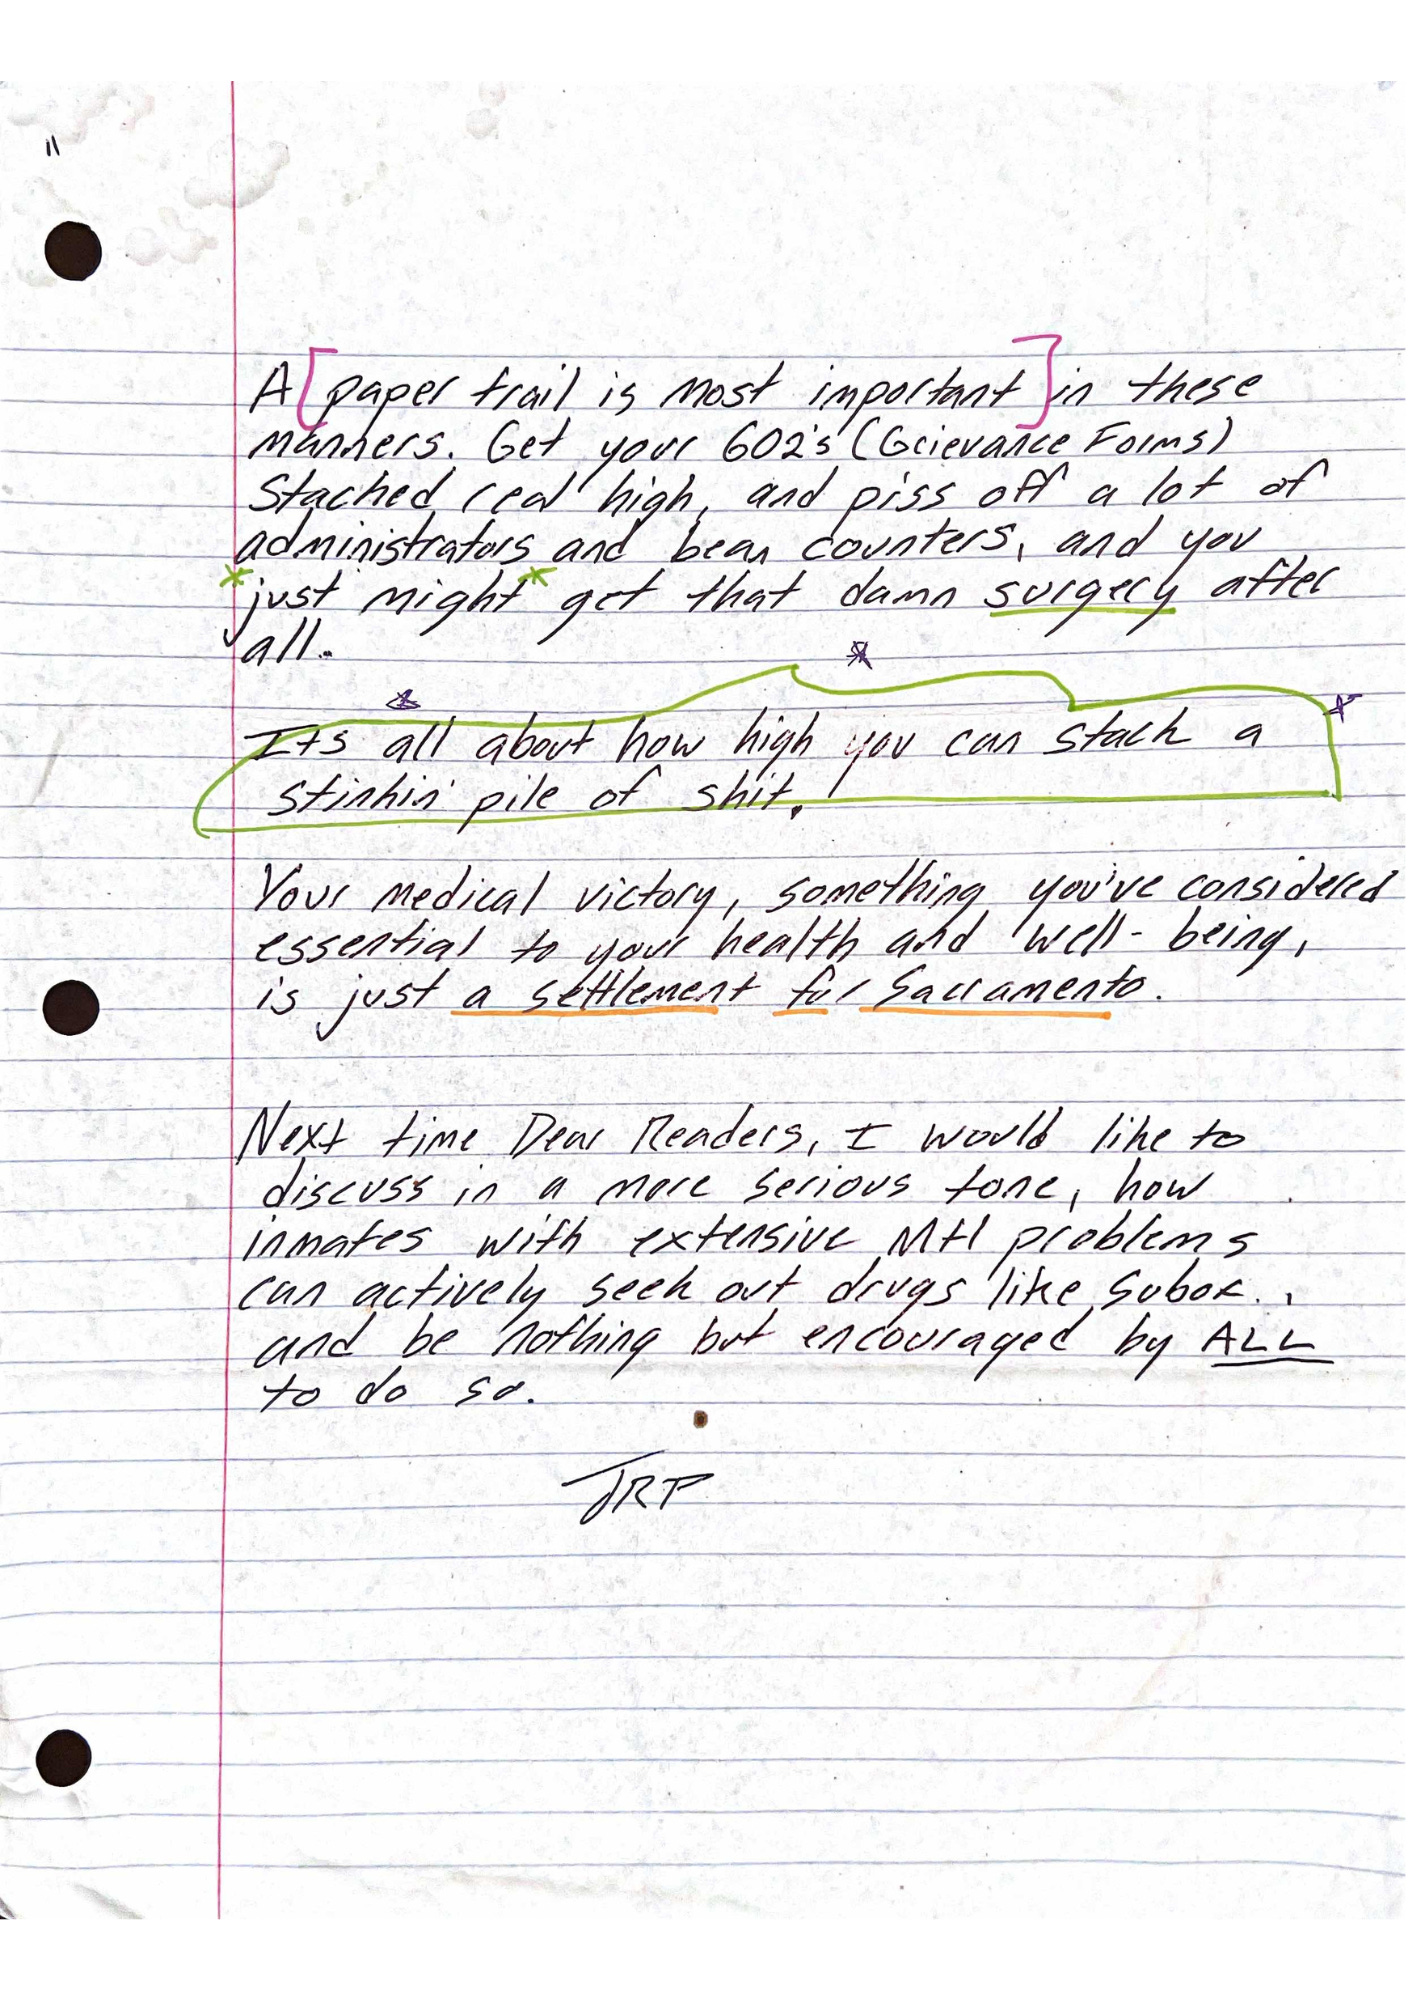 11
A [paper trail is most important] in these
manners. Get your 602's (Grievance Forms)
Stacked real high, and piss off a lot of
administrators and bean counters, and you
*just might* get that damn surgery after
all.
Its all about how high you can stack a
stinkin' pile of shit.
Your medical victory, something you've considered
essential to your health and well-being,
is just a settlement for Sacramento.
Next time Dear Readers, I would like to
discuss in a more serious tone, how
inmates with extensive MH problems
can actively seek out drugs like Subox.,
and be nothing but encouraged by ALL
to do so.
JRP